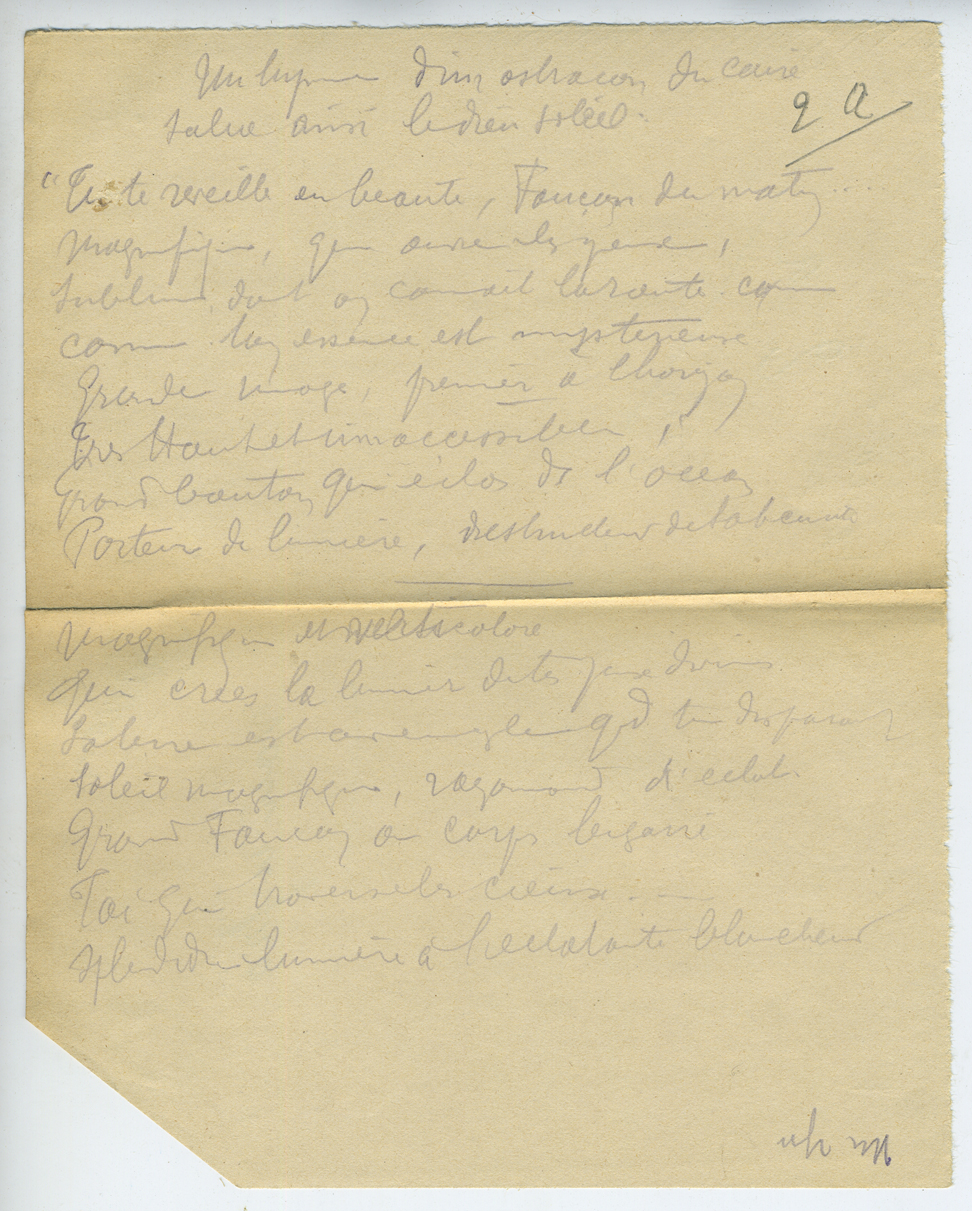 Un hymne d'un ostracon du Caire
salue ainsi le dieu soleil:
9 a
"Tu te reveille en beaute, Faucon du matin...
Magnifique, qui ouvre les yeux,
Sublime dont on connait la route
comme ton essence est mysterieuse
Grande image, premier à l'horizon
Tres Haut et inaccessible
grand bouton qui éclos de l'ocean
Porteur de lumière, destructeur de l'obscurité
Magnifique et
qui crées la lumière de tes yeux divins
La terre est aveugle qd tu disparais
Soleil magnifique, rayonnant d'eclat.
Grand Faucon au corps bigarré
Toi qui traverse les cieux
splendide lumière à l'eclatante blancheur